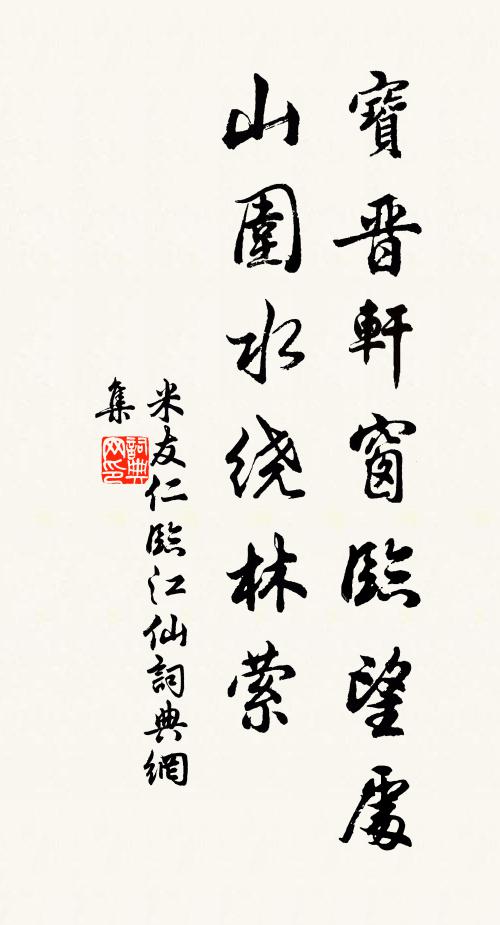 寶晋軒窗臨望處
山圍水绕林萦
米友仁臨江仙詞典網
集
詞典网印